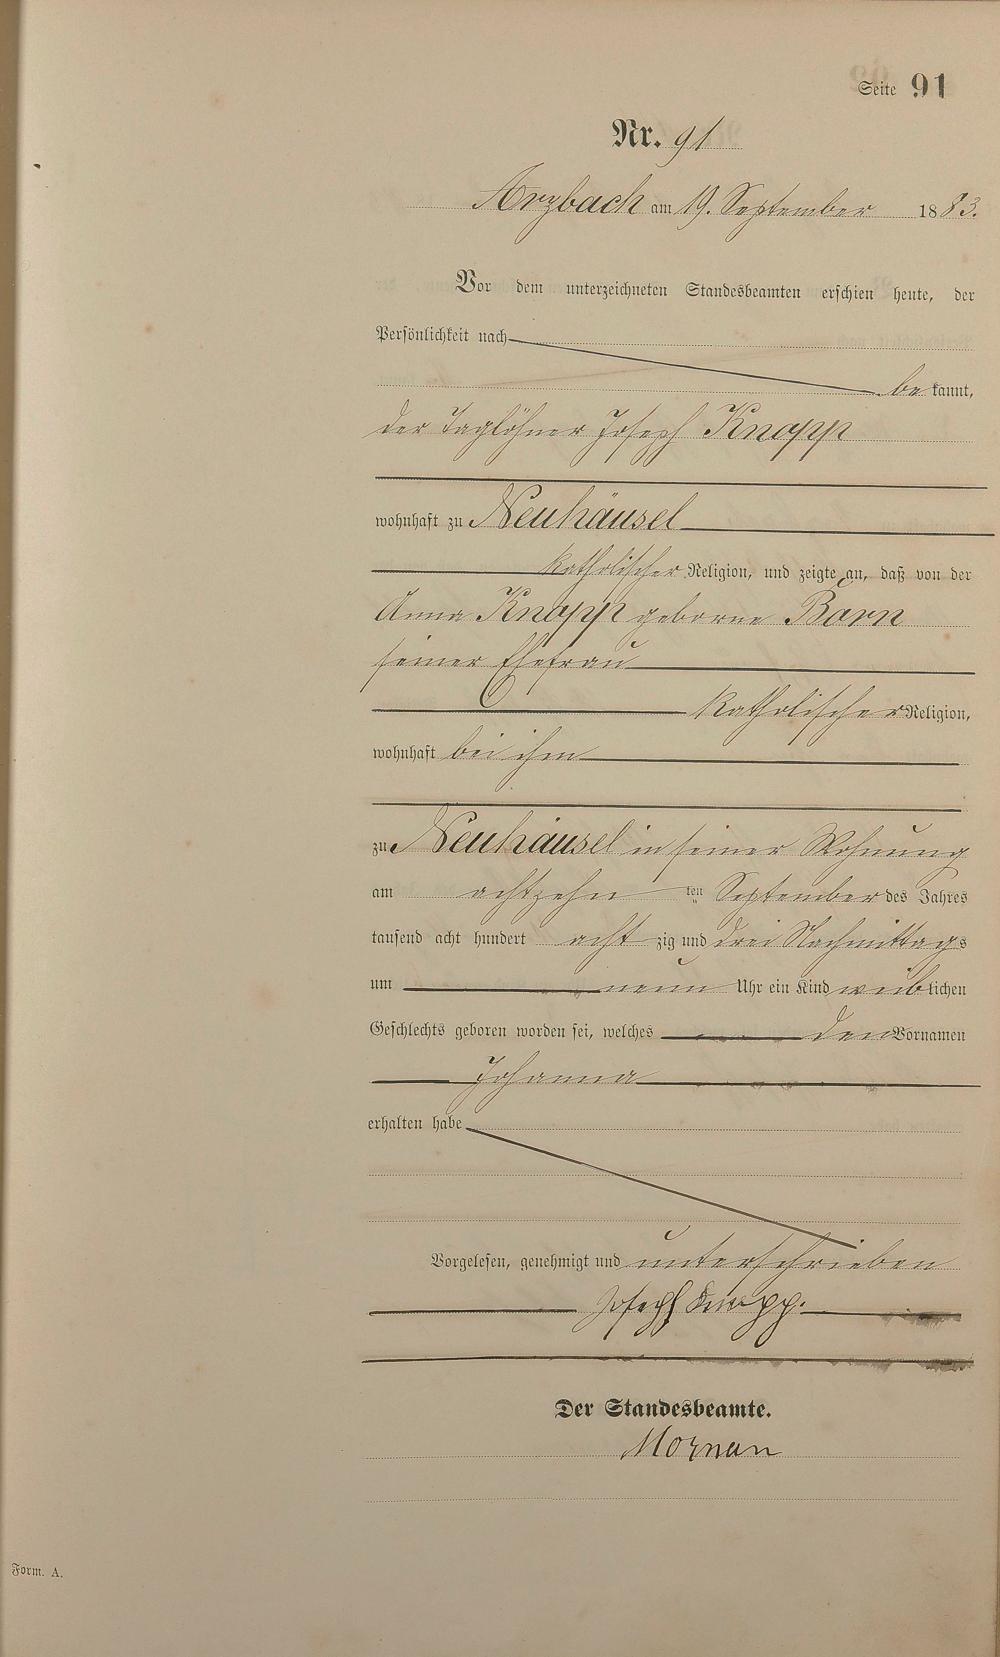 Seite 91
Nr. 91
Arzbach am 19. September 1883.
Vor dem unterzeichneten Standesbeamten erschien heute, der
Persönlichkeit nach
bekannt,
der Taglöhner Joseph Knopp
wohnhaft zu Neuhäusel
katholischer Religion, und zeigte an, daß von der
Anna Knopp geborne Born
seiner Ehefrau
katholischer Religion,
wohnhaft bei ihm
zu Neuhäusel in seiner Wohnung
am achtzehn ten September des Jahres
tausend acht hundert acht zig und drei Nachmittags
um neun Uhr ein Kind weiblichen
Geschlechts geboren worden sei, welches den Vornamen
Johanna
erhalten habe
Vorgelesen, genehmigt und unterschrieben
Joseph Knopp.
Der Standesbeamte.
Form. A.